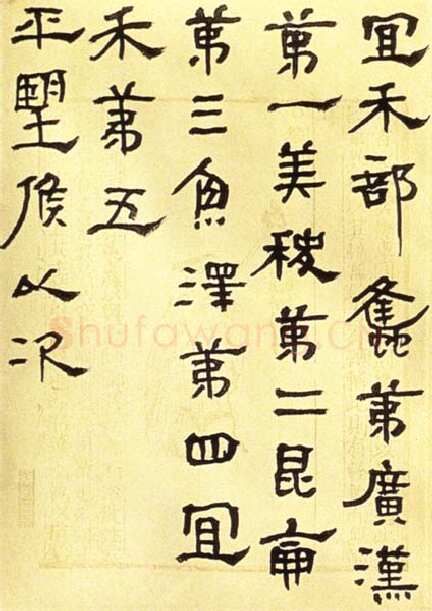 宜禾部蠭第廣漢
第一美稷第二昆侖
第三魚澤第四宜
禾第五
平朢侯以次
Shufawang.CN